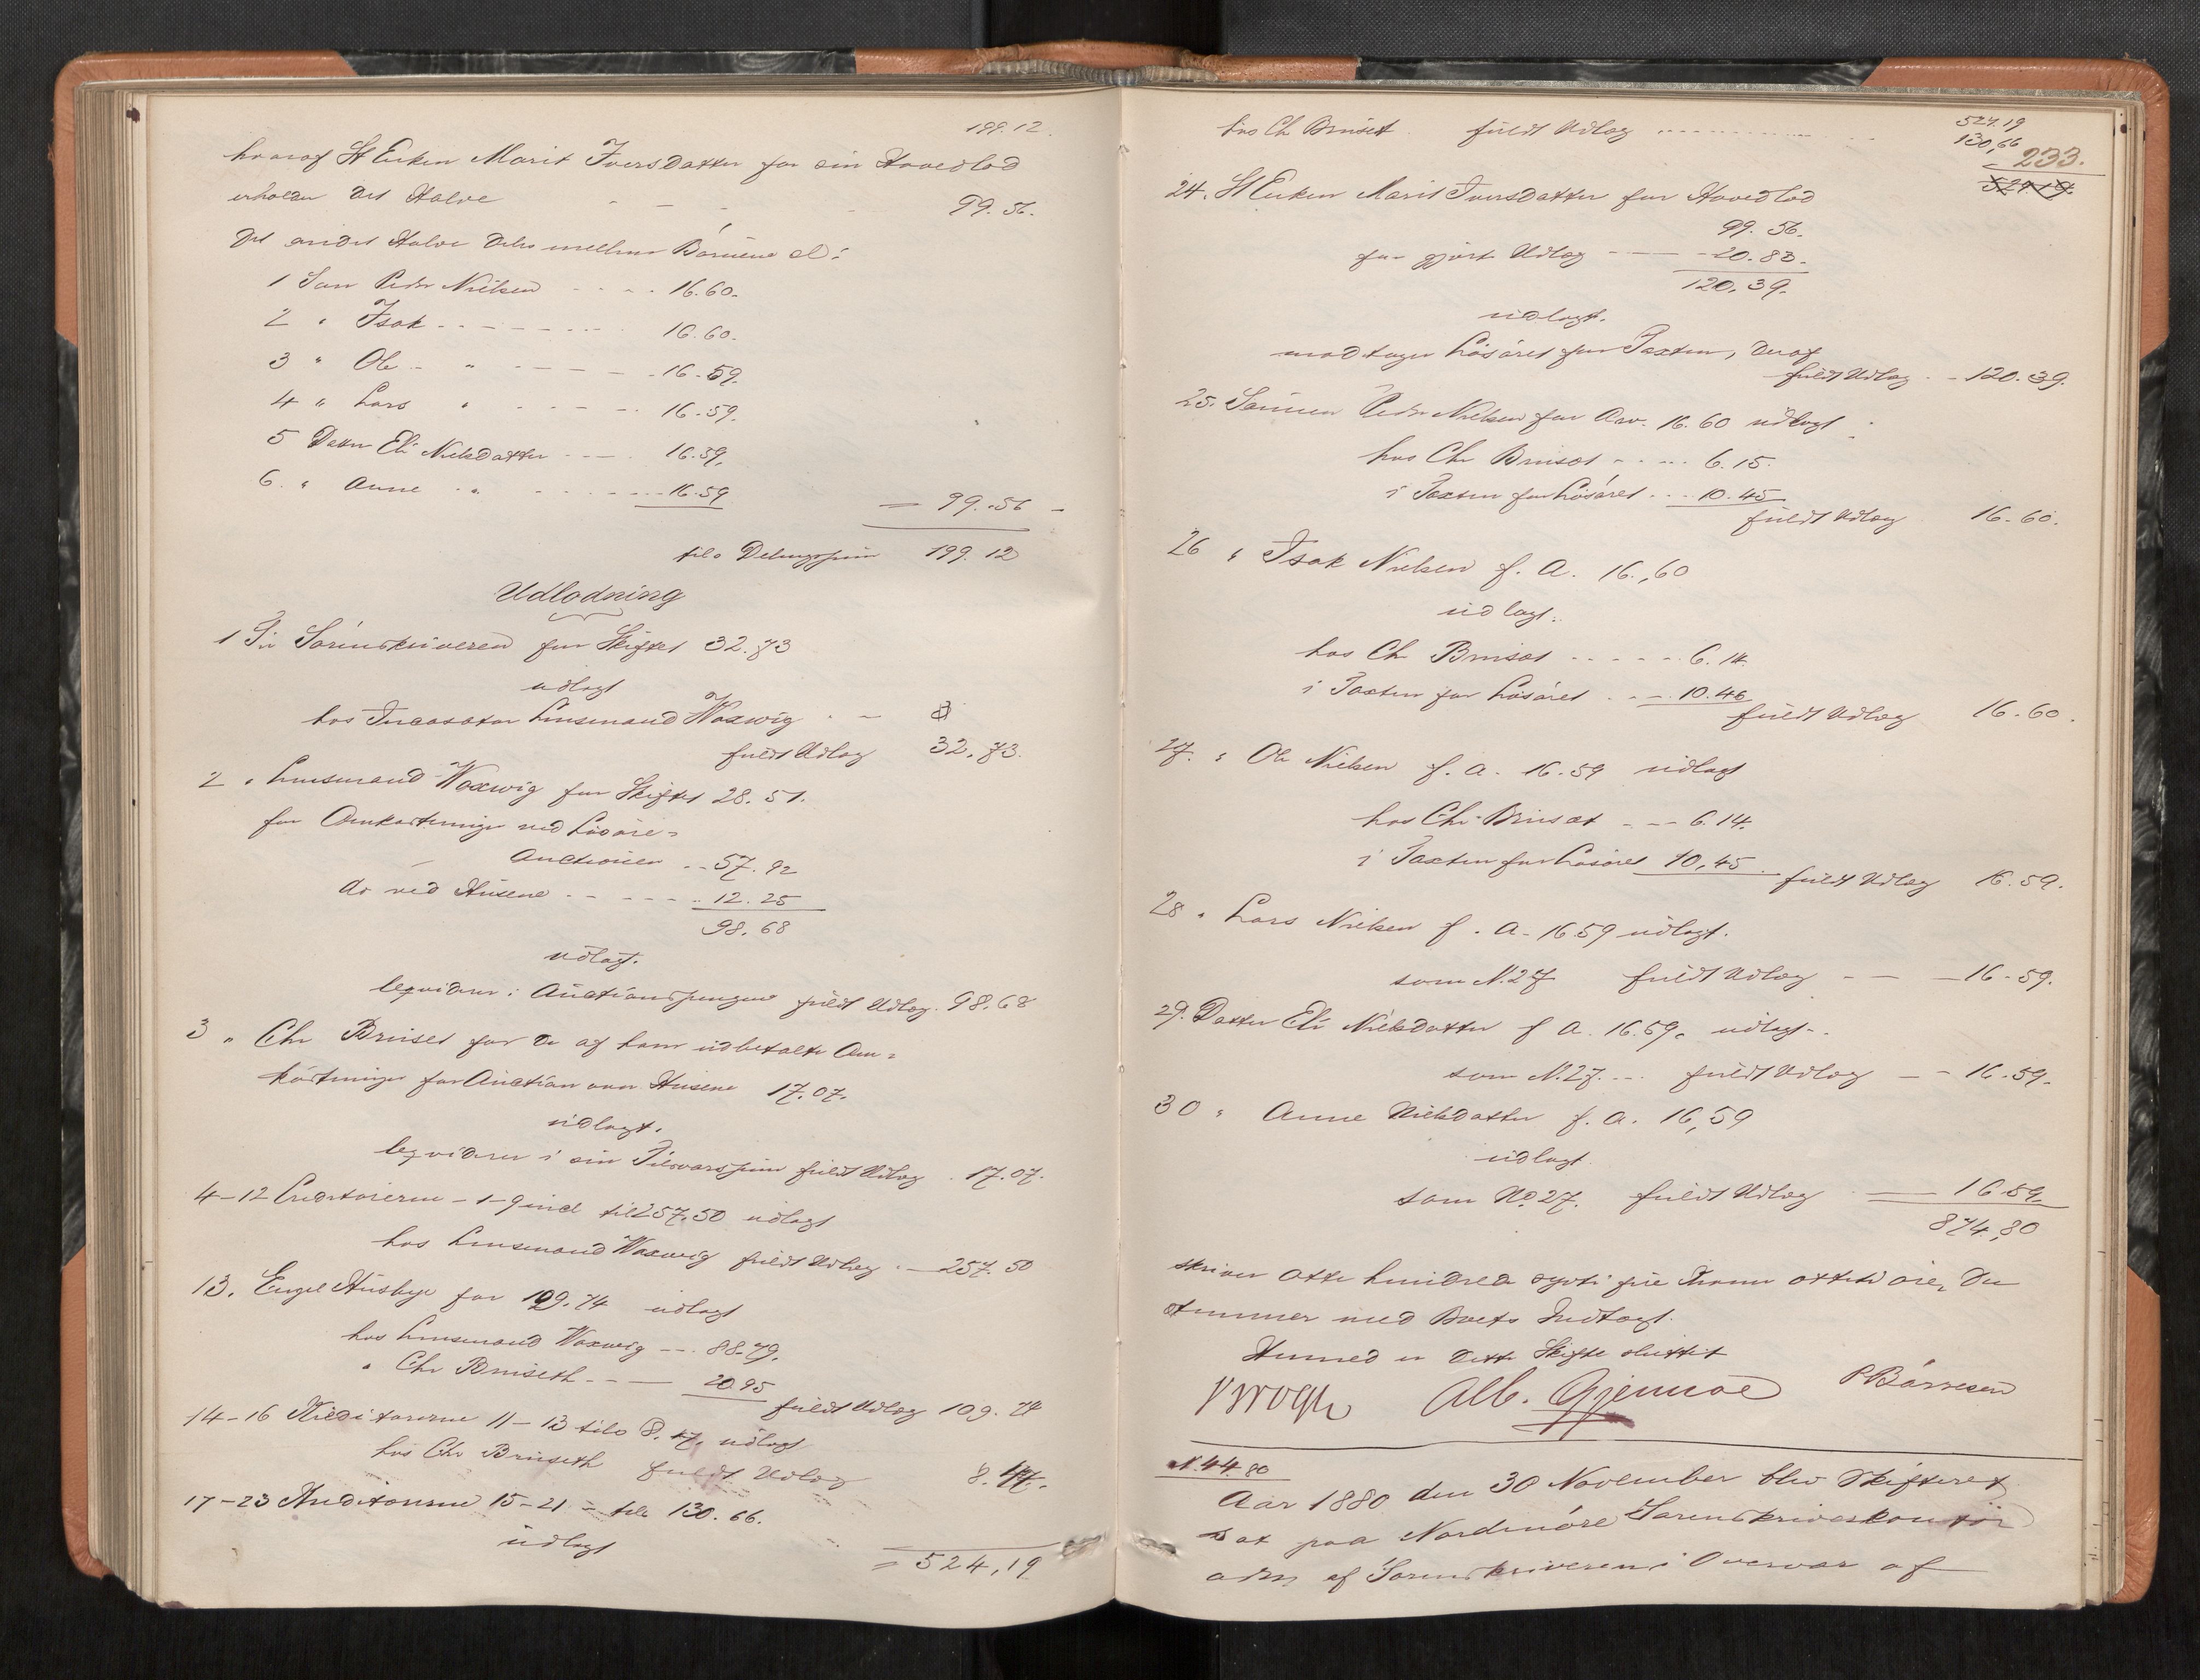 199.12.
hvoraf St Enken Marit Iversdatter for sin Hovedlod
erholder det Halve - - - 99.56.
det andet Halve deles mellem Børnene a:
1 Søn Peder Nielsen - - - - 16.60.
2 " Isak - - - - - - - 16.60.
3 " Ole - " - - - - - 16.59.
4 " Lars " - - - - - 16.59.
5 Datter Eli Nielsdatter - - - 16.59,
6. " Anne - " - - - - - - 16.59 = 99.56 -
tils Delingssum 199.12
Udlodning
1 Til Sorenskriveren for Skiftet 32.73
udlagt
hos Incassator Lensmand Waxwig - -
fuldt Udlæg 32.73.
2 " Lensmand Waxwig for Skiftet 28.51.
for Omkostninger ved Løsøre=
Auctionen - - 57.92
do ved Husene - - - - - - 12.25
98.68
udlagt.
leqviderer i Auctionspengene fuldt Udlæg. 98.68
3 " Chr Bruset for de af ham udbetalte Om=
kostninger for Auction over Husene 17.07.
udlagt.
leqviderer i sin Tilsvarssum fuldt Udlæg . 17.07.
4-12 Creditorerne - 1-9 incl til 257.50 udlagt
hos Lensmand Waxwig fuldt Udlæg . - 257.50
13. Engel Husbye for 109.74 udlagt
hos Lensmand Waxwig - - . 88.79.
" Chr Bruseth - - - 20.95
fuldt Udlæg 109.74
14-16 Kreditorerne 11-13 tils 8.47. udlagt
hos Chr Bruseth fuldt Udlæg 8.47.
17-23 Kreditorerne 15-21 - tils 130.66.
udlagt
= 524,19
524.19
hos Ch Bruset fuldt Udlæg - - - - - 130,66
233.
524.19.
24. St Enken Marit Iversdatter for Hovedlod
99.56.
for gjort Udlæg - - - 20.83.
120.39.
udlagt.
modtager Løsøret for Taxten, deraf
fuldt Udlæg - - 120.39.
25. Sønnen Peder Nielsen for Arv. 16.60 udlagt
hos Chr Bruset - - - - 6.15.
i Taxten for Løsøret - - - 10.45
fuldt Udlæg 16.60.
26 " Isak Nielsen f. A. 16.,60
udlagt.
hos Ch Bruset - - - - - 6.14.
i Taxten for Løsøret - - - 10.46
fuldt Udlæg 16.60.
27. " Ole Nielsen f. A. 16.59 udlagt
hos Chr Bruset - - - 6.14.
i Taxten for Løsøret 10,45 fuldt Udlæg 16.59.
28 " Lars Nielsen f. A. 16.59 udlagt.
som N. 27 fuldt Udlæg - - - 16-59.
29. Datter Eli Nielsdatter f A. 16.59. udlagt -.
som N. 27. - - fuldt Udlæg - - 16-59.
30 " Anne Nielsdatter f. A. 16,59
udlagt
som No 27. fuldt Udlæg - 16.59.
874,80
skriver otte hundrede sytti fire Kroner otteti øre, der
stemmer med Boets Indtægt.
Hermed er dette Skifte sluttet
Alb. Gjemroe PBørresen
N. 44 80
Aar 1880 den 30 November blev Skifteret
sat paa Nordmøre Sorenskriverkontor
adm af Sorenskriveren i Overvær af